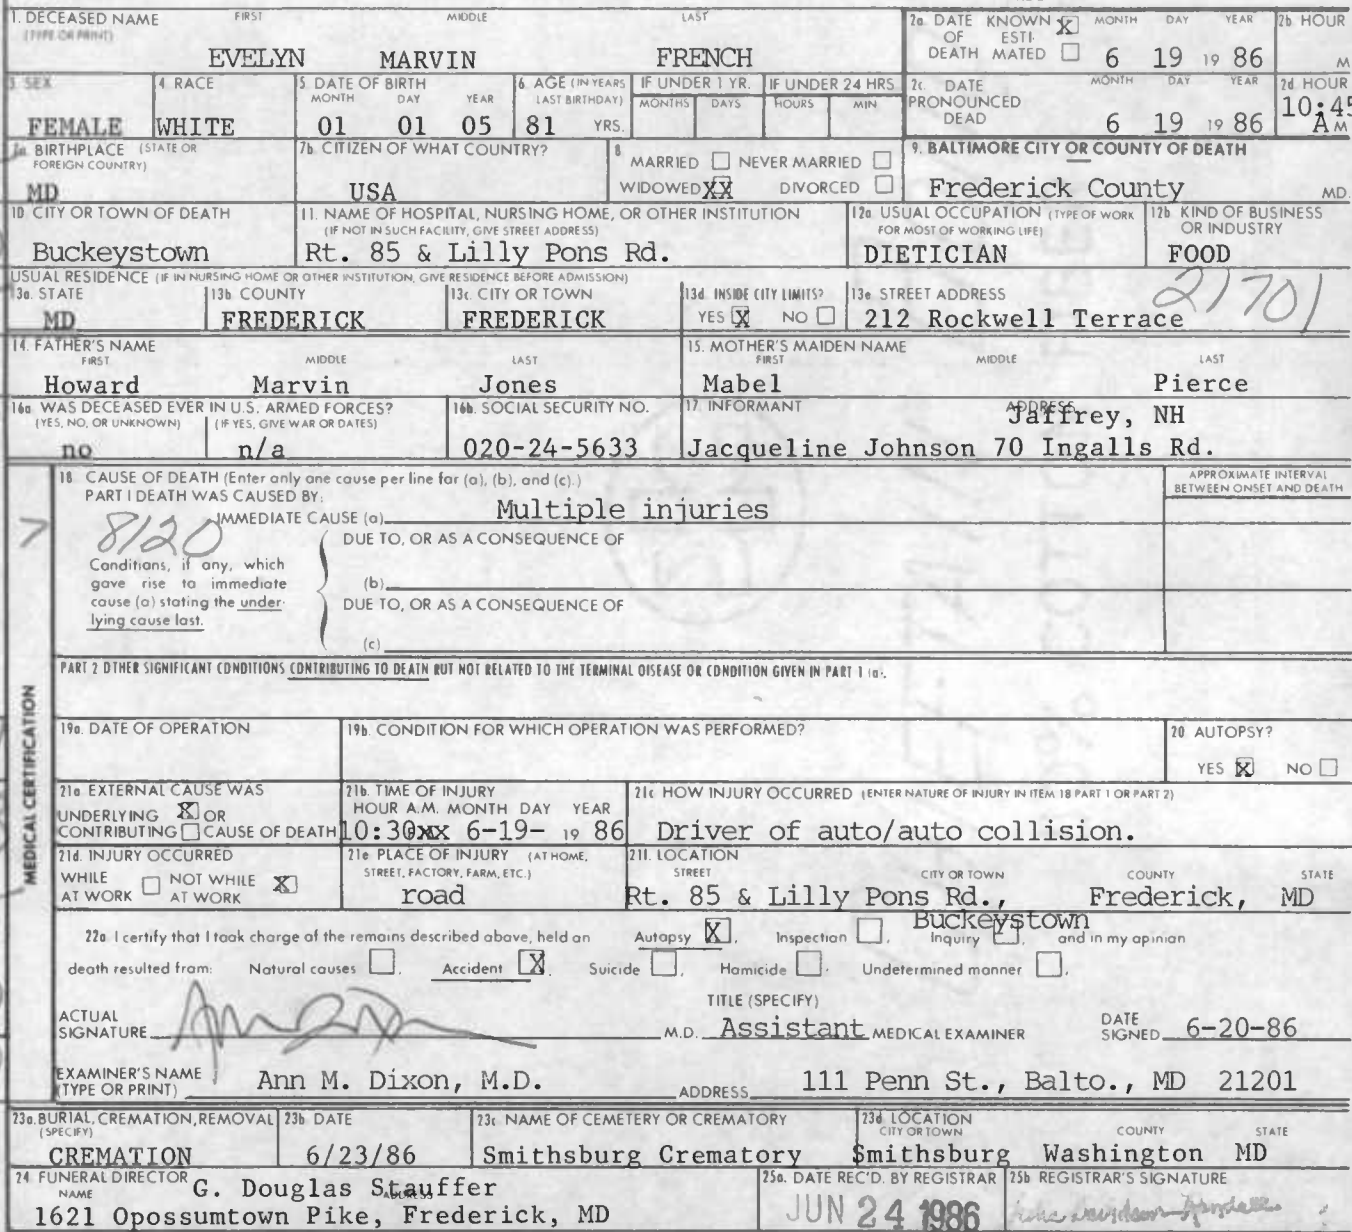 1. DECEASED NAME (TYPE OR PRINT) FIRST MIDDLE LAST
EVELYN MARVIN FRENCH
2a. DATE OF DEATH KNOWN X ESTIMATED MONTH DAY YEAR
6 19 19 86
2b HOUR
M
3 SEX
FEMALE
4 RACE
WHITE
5 DATE OF BIRTH MONTH DAY YEAR
01 01 05
6. AGE (IN YEARS LAST BIRTHDAY)
81 YRS.
IF UNDER 1 YR. MONTHS DAYS
IF UNDER 24 HRS HOURS MIN
2c. DATE PRONOUNCED DEAD MONTH DAY YEAR
6 19 19 86
2d HOUR
10:45 A M
7a BIRTHPLACE (STATE OR FOREIGN COUNTRY)
MD
7b. CITIZEN OF WHAT COUNTRY?
USA
8 MARRIED NEVER MARRIED
WIDOWED XX DIVORCED
9. BALTIMORE CITY OR COUNTY OF DEATH
Frederick County MD.
10. CITY OR TOWN OF DEATH
Buckeystown
11. NAME OF HOSPITAL, NURSING HOME, OR OTHER INSTITUTION
(IF NOT IN SUCH FACILITY, GIVE STREET ADDRESS)
Rt. 85 & Lilly Pons Rd.
12a USUAL OCCUPATION (TYPE OF WORK FOR MOST OF WORKING LIFE)
DIETICIAN
12b. KIND OF BUSINESS OR INDUSTRY
FOOD
USUAL RESIDENCE (IF IN NURSING HOME OR OTHER INSTITUTION, GIVE RESIDENCE BEFORE ADMISSION)
13a. STATE
MD
13b COUNTY
FREDERICK
13c. CITY OR TOWN
FREDERICK
13d INSIDE CITY LIMITS?
YES X NO
13e STREET ADDRESS
212 Rockwell Terrace
21701
14. FATHER'S NAME FIRST MIDDLE LAST
Howard Marvin Jones
15. MOTHER'S MAIDEN NAME FIRST MIDDLE LAST
Mabel Pierce
16a WAS DECEASED EVER IN U.S. ARMED FORCES?
(YES, NO, OR UNKNOWN) (IF YES, GIVE WAR OR DATES)
no n/a
16b. SOCIAL SECURITY NO.
020-24-5633
17 INFORMANT ADDRESS
Jaffrey, NH
Jacqueline Johnson 70 Ingalls Rd.
MEDICAL CERTIFICATION
7
18 CAUSE OF DEATH (Enter only one cause per line for (a), (b), and (c).)
PART I DEATH WAS CAUSED BY:
APPROXIMATE INTERVAL BETWEEN ONSET AND DEATH
8120
IMMEDIATE CAUSE (a) Multiple injuries
DUE TO, OR AS A CONSEQUENCE OF
Conditions, if any, which
gave rise to immediate
cause (a) stating the under-
lying cause last.
(b)
DUE TO, OR AS A CONSEQUENCE OF
(c)
PART 2 OTHER SIGNIFICANT CONDITIONS CONTRIBUTING TO DEATH BUT NOT RELATED TO THE TERMINAL DISEASE OR CONDITION GIVEN IN PART 1 (a).
19a. DATE OF OPERATION
19b. CONDITION FOR WHICH OPERATION WAS PERFORMED?
20 AUTOPSY?
YES X NO
21a EXTERNAL CAUSE WAS
UNDERLYING X OR
CONTRIBUTING CAUSE OF DEATH
21b. TIME OF INJURY
HOUR A.M. MONTH DAY YEAR
10:30xx 6-19- 19 86
21c HOW INJURY OCCURRED (ENTER NATURE OF INJURY IN ITEM 18 PART 1 OR PART 2)
Driver of auto/auto collision.
21d. INJURY OCCURRED
WHILE AT WORK NOT WHILE AT WORK X
21e PLACE OF INJURY (AT HOME, STREET, FACTORY, FARM, ETC.)
road
21f. LOCATION
STREET CITY OR TOWN COUNTY STATE
Rt. 85 & Lilly Pons Rd., Frederick, MD
Buckeystown
22a I certify that I took charge of the remains described above, held an Autopsy X, Inspection, Inquiry, and in my opinion
death resulted from: Natural causes, Accident X, Suicide, Homicide, Undetermined manner.
ACTUAL SIGNATURE M.D.
TITLE (SPECIFY)
Assistant MEDICAL EXAMINER
DATE SIGNED 6-20-86
EXAMINER'S NAME (TYPE OR PRINT) Ann M. Dixon, M.D.
ADDRESS 111 Penn St., Balto., MD 21201
23a. BURIAL, CREMATION, REMOVAL (SPECIFY)
CREMATION
23b DATE
6/23/86
23c NAME OF CEMETERY OR CREMATORY
Smithsburg Crematory
23d LOCATION CITY OR TOWN COUNTY STATE
Smithsburg Washington MD
24 FUNERAL DIRECTOR NAME ADDRESS
G. Douglas Stauffer
1621 Opossumtown Pike, Frederick, MD
25a. DATE REC'D. BY REGISTRAR
JUN 24 1986
25b REGISTRAR'S SIGNATURE